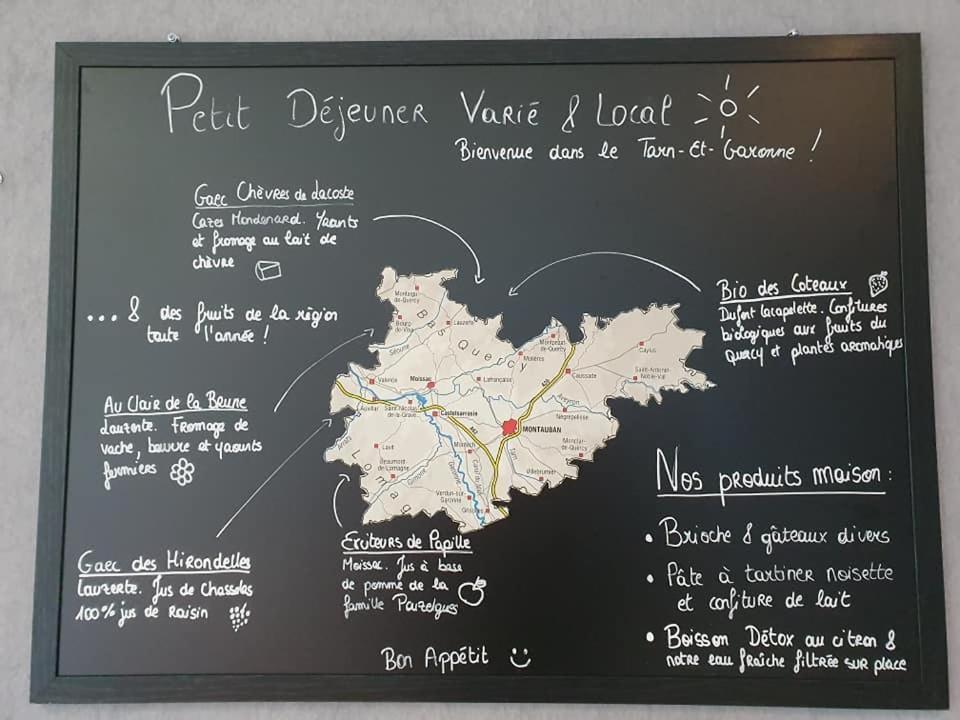 Petit Déjeuner Varié & Local
Bienvenue dans le Tarn-Et-Garonne !
Gaec Chèvres de Lacoste
Cazes Mondenard. Yaourts
et fromage au lait de
chèvre
... & des fruits de la région
toute l'année !
Au Clair de la Beune
Lauzerte. Fromage de
vache, beurre et yaourts
fermiers
Gaec des Hirondelles
Lauzerte. Jus de Chasselas
100% jus de Raisin
Exciteurs de Papille
Moissac. Jus à base
de pomme de la
famille
Bio des Coteaux
Dufort Lacapelette. Confitures
biologiques aux fruits du
Quercy et plantes aromatiques
Montaigu-
de-Quercy
Bourg-
de-Visa
Lauzerte
Bas Quercy
Séoune
Molières
Montpezat-
de-Quercy
Caylus
Saint-Antonin-
Noble-Val
Caussade
Lafrançaise
Valence
Moissac
A20
Auvillar
Saint-Nicolas-
de-la-Grave
Castelsarrasin
Aveyron
Nègrepelisse
MONTAUBAN
Arrats
Lavit
Montech
Monclar-
de-Quercy
Beaumont-
de-Lomagne
Gimone
Garonne
Canal du Midi
Tarn
Villebrumier
Lomag
Verdun-sur-
Garonne
Grisolles
Nos produits maison :
• Brioche & gâteaux divers
• Pâte à tartiner noisette
et confiture de lait
• Boisson Détox au citron &
notre eau fraîche filtrée sur place
Bon Appétit